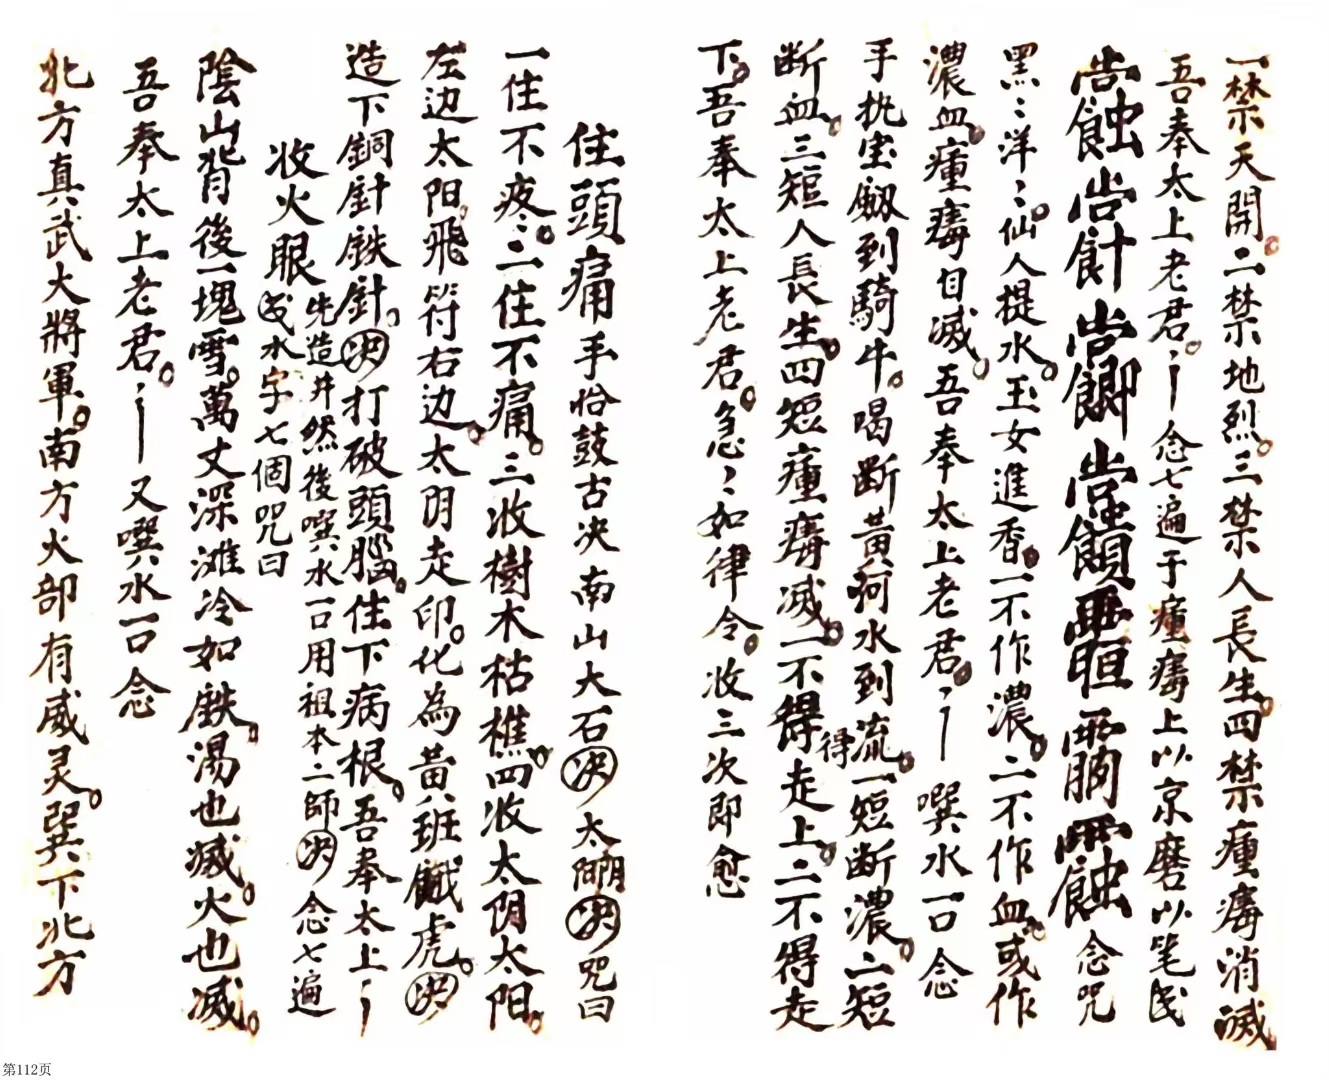 一禁天開。二禁地烈。三禁人長生。四禁瘇毒消滅
吾奉太上老君。〻丨念七遍于瘇毒上以京磨以笔民
念咒
黑〻洋〻。仙人提水。玉女進香。一不作濃。二不作血。或作
濃血。瘇毒自滅。吾奉太上老君。〻丨噀水一口念
手执宝劔到騎牛。喝断黃河水到流。一短断濃。二短
断血。三短人長生。四短瘇毒滅。一不得走上。二不得走
得
下。吾奉太上老君。急〻如律令。收三次即愈
住頭痛手恰鼓古决南山大石决太陰太陽决咒曰
一住不疼。二住不痛。三收樹木枯樵。四收太阴太阳。
左边太阳。飛符右边。太阴走印。化為黃班虎。决
造下銅針鉄針。决打破頭腦。住下病根。吾奉太上〻丨
收火眼先造井然後噀水一口用祖本二師决念七遍
水字七個咒曰
陰山背後一塊雪。萬丈深滩冷如鉄。湯也滅。火也滅。
吾奉太上老君。〻丨又噀水一口念
北方真武大將軍。南方火部有威灵。巽下北方
第112页